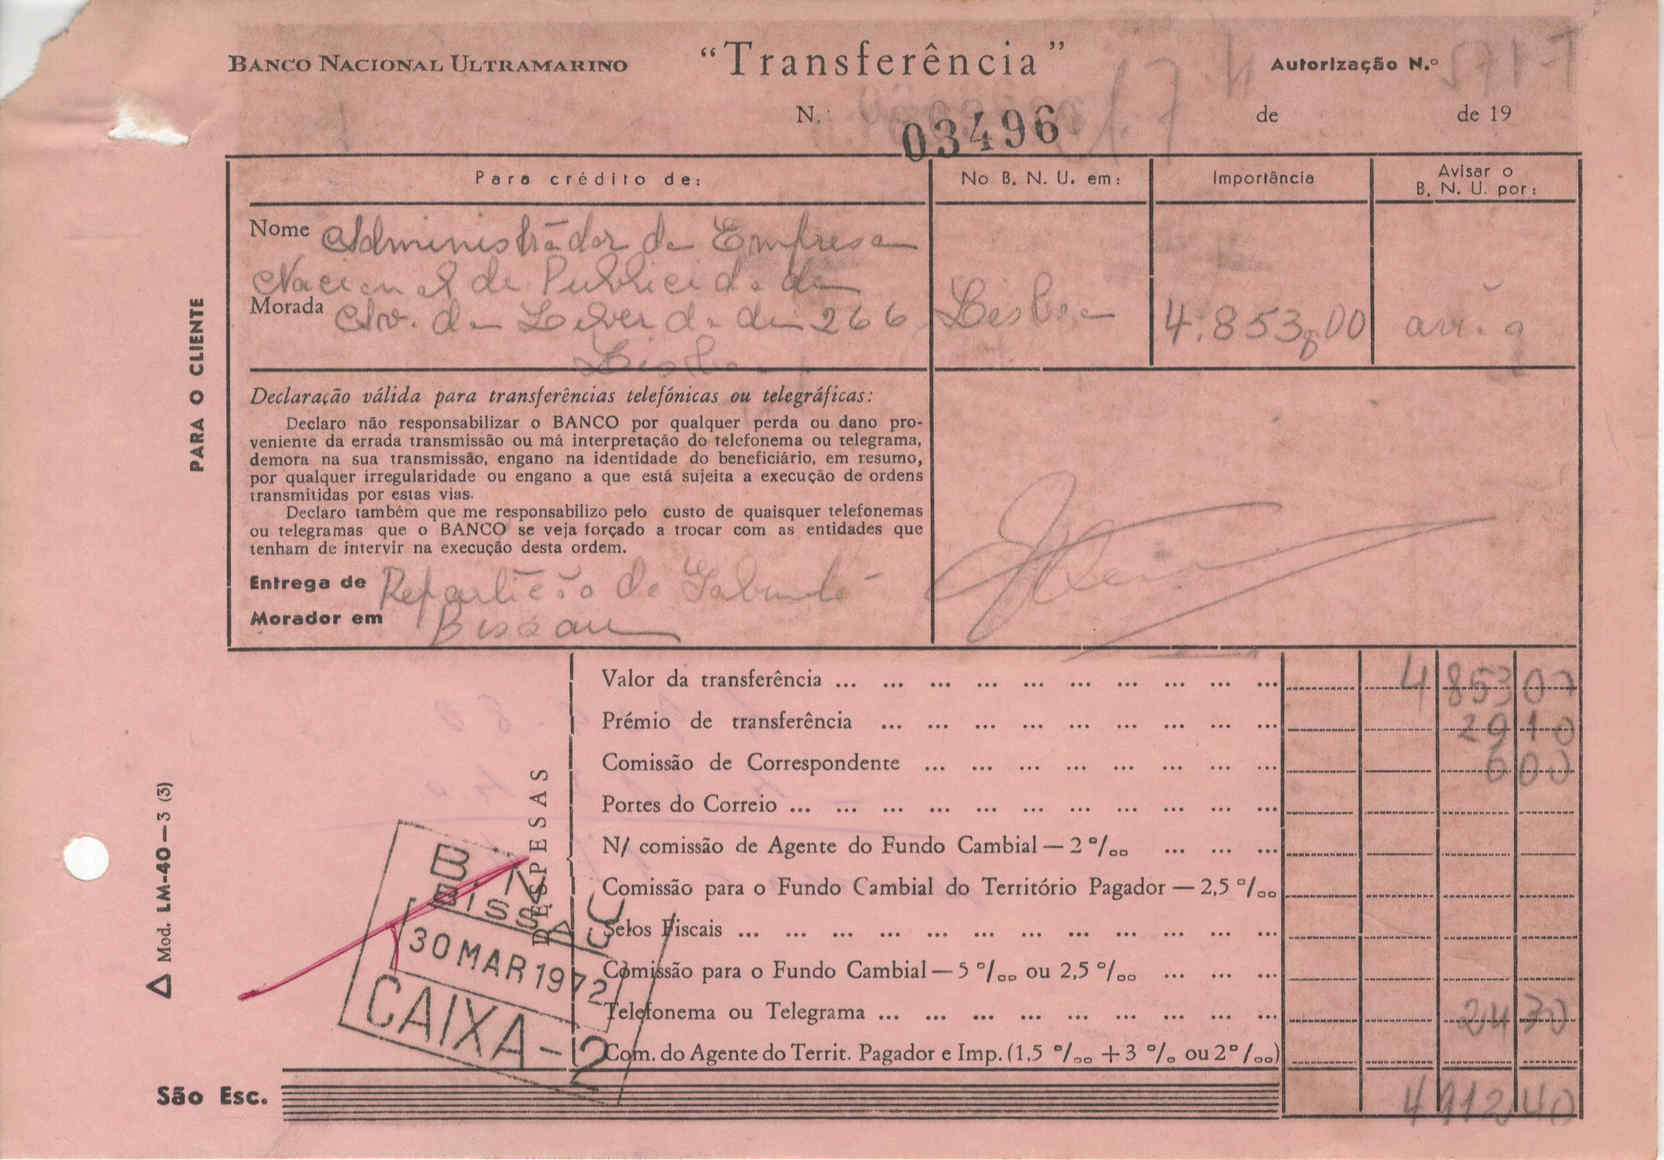 BANCO NACIONAL ULTRAMARINO
“Transferência”
Autorização N.º
N.º 03496
de de 19
Para crédito de:
No B. N. U. em:
Importância
Avisar o
B. N. U. por:
Nome Administrador da Empresa
Nacional de Publicidade
Morada Av. da Liberdade 266
Lisboa
Lisboa
4.853$00
Declaração válida para transferências telefónicas ou telegráficas:
Declaro não responsabilizar o BANCO por qualquer perda ou dano pro-
veniente da errada transmissão ou má interpretação do telefonema ou telegrama,
demora na sua transmissão, engano na identidade do beneficiário, em resumo,
por qualquer irregularidade ou engano a que está sujeita a execução de ordens
transmitidas por estas vias.
Declaro também que me responsabilizo pelo custo de quaisquer telefonemas
ou telegramas que o BANCO se veja forçado a trocar com as entidades que
tenham de intervir na execução desta ordem.
Entrega de Repartição do Gabinete
Morador em Bissau
PARA O CLIENTE
DESPESAS
Valor da transferência ... ... ... ... ... ... ... ... ... ... 4 853 00
Prémio de transferência ... ... ... ... ... ... ... ... ... 29 10
Comissão de Correspondente ... ... ... ... ... ... ... ... 6 00
Portes do Correio ... ... ... ... ... ... ... ... ... ... ...
N/ comissão de Agente do Fundo Cambial — 2 º/ₒₒ ... ... ...
Comissão para o Fundo Cambial do Território Pagador — 2,5 º/ₒₒ
Selos Fiscais ... ... ... ... ... ... ... ... ... ... ... ...
Comissão para o Fundo Cambial — 5 º/ₒₒ ou 2,5 º/ₒₒ ... ... ...
Telefonema ou Telegrama ... ... ... ... ... ... ... ... ... 24 30
Com. do Agente do Territ. Pagador e Imp. (1,5 º/ₒₒ + 3 º/ₒ ou 2º/ₒₒ)
São Esc. 4 912 40
B N U
BISSAU
30 MAR 1972
CAIXA-2
Δ Mod. LM-40 — 3 (3)